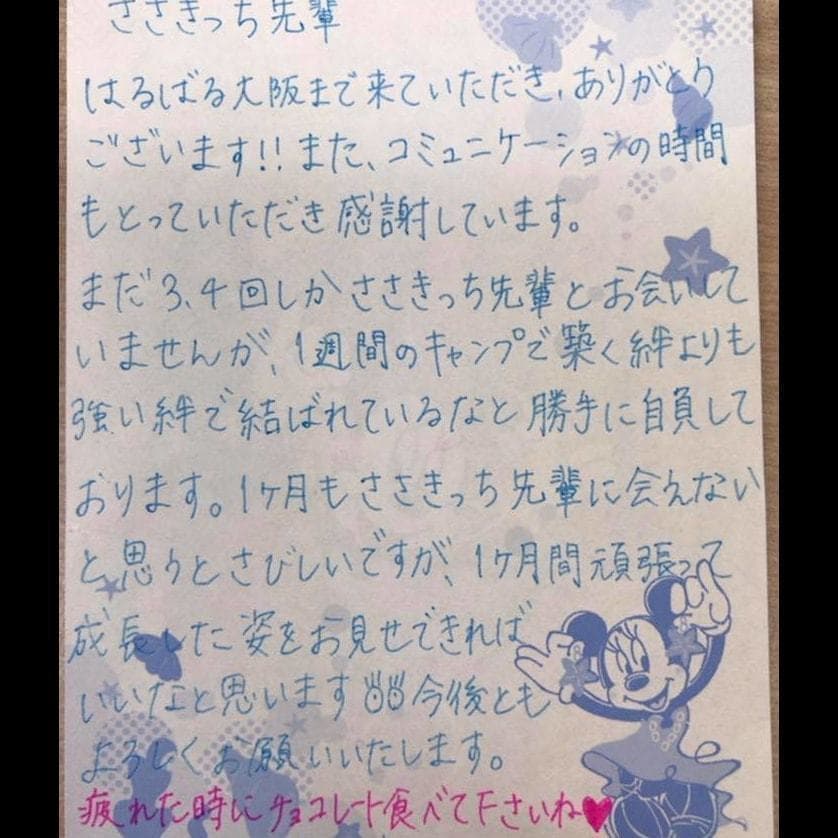 ささきっち先輩
はるばる大阪まで来ていただき、ありがとう
ございます!!また、コミュニケーションの時間
もとっていただき感謝しています。
まだ3、4回しかささきっち先輩とお会いして
いませんが、1週間のキャンプで築く絆よりも
強い絆で結ばれているなと勝手に自負して
おります。1ヶ月もささきっち先輩に会えない
と思うとさびしいですが、1ヶ月間頑張って
成長した姿をお見せできれば
いいなと思います 今後とも
よろしくお願いいたします。
疲れた時にチョコレート食べて下さいね♥